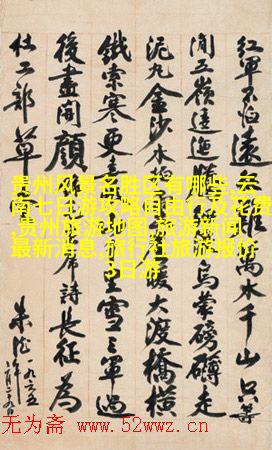 紅軍不怕遠 萬水千山只等
閒五嶺逶迤 烏蒙磅礴走
泥丸金沙水 暖大渡橋橫
鐵索寒更喜 雪三軍過
後盡開顏 席詩長征為
杜工部草
贵州风景名胜区有哪些,云
南七日游攻略自由行及花费
,贵州旅游地图,旅游新闻
最新消息,旅行社旅游报价
3日游
无为斋 www.52wwz.cn